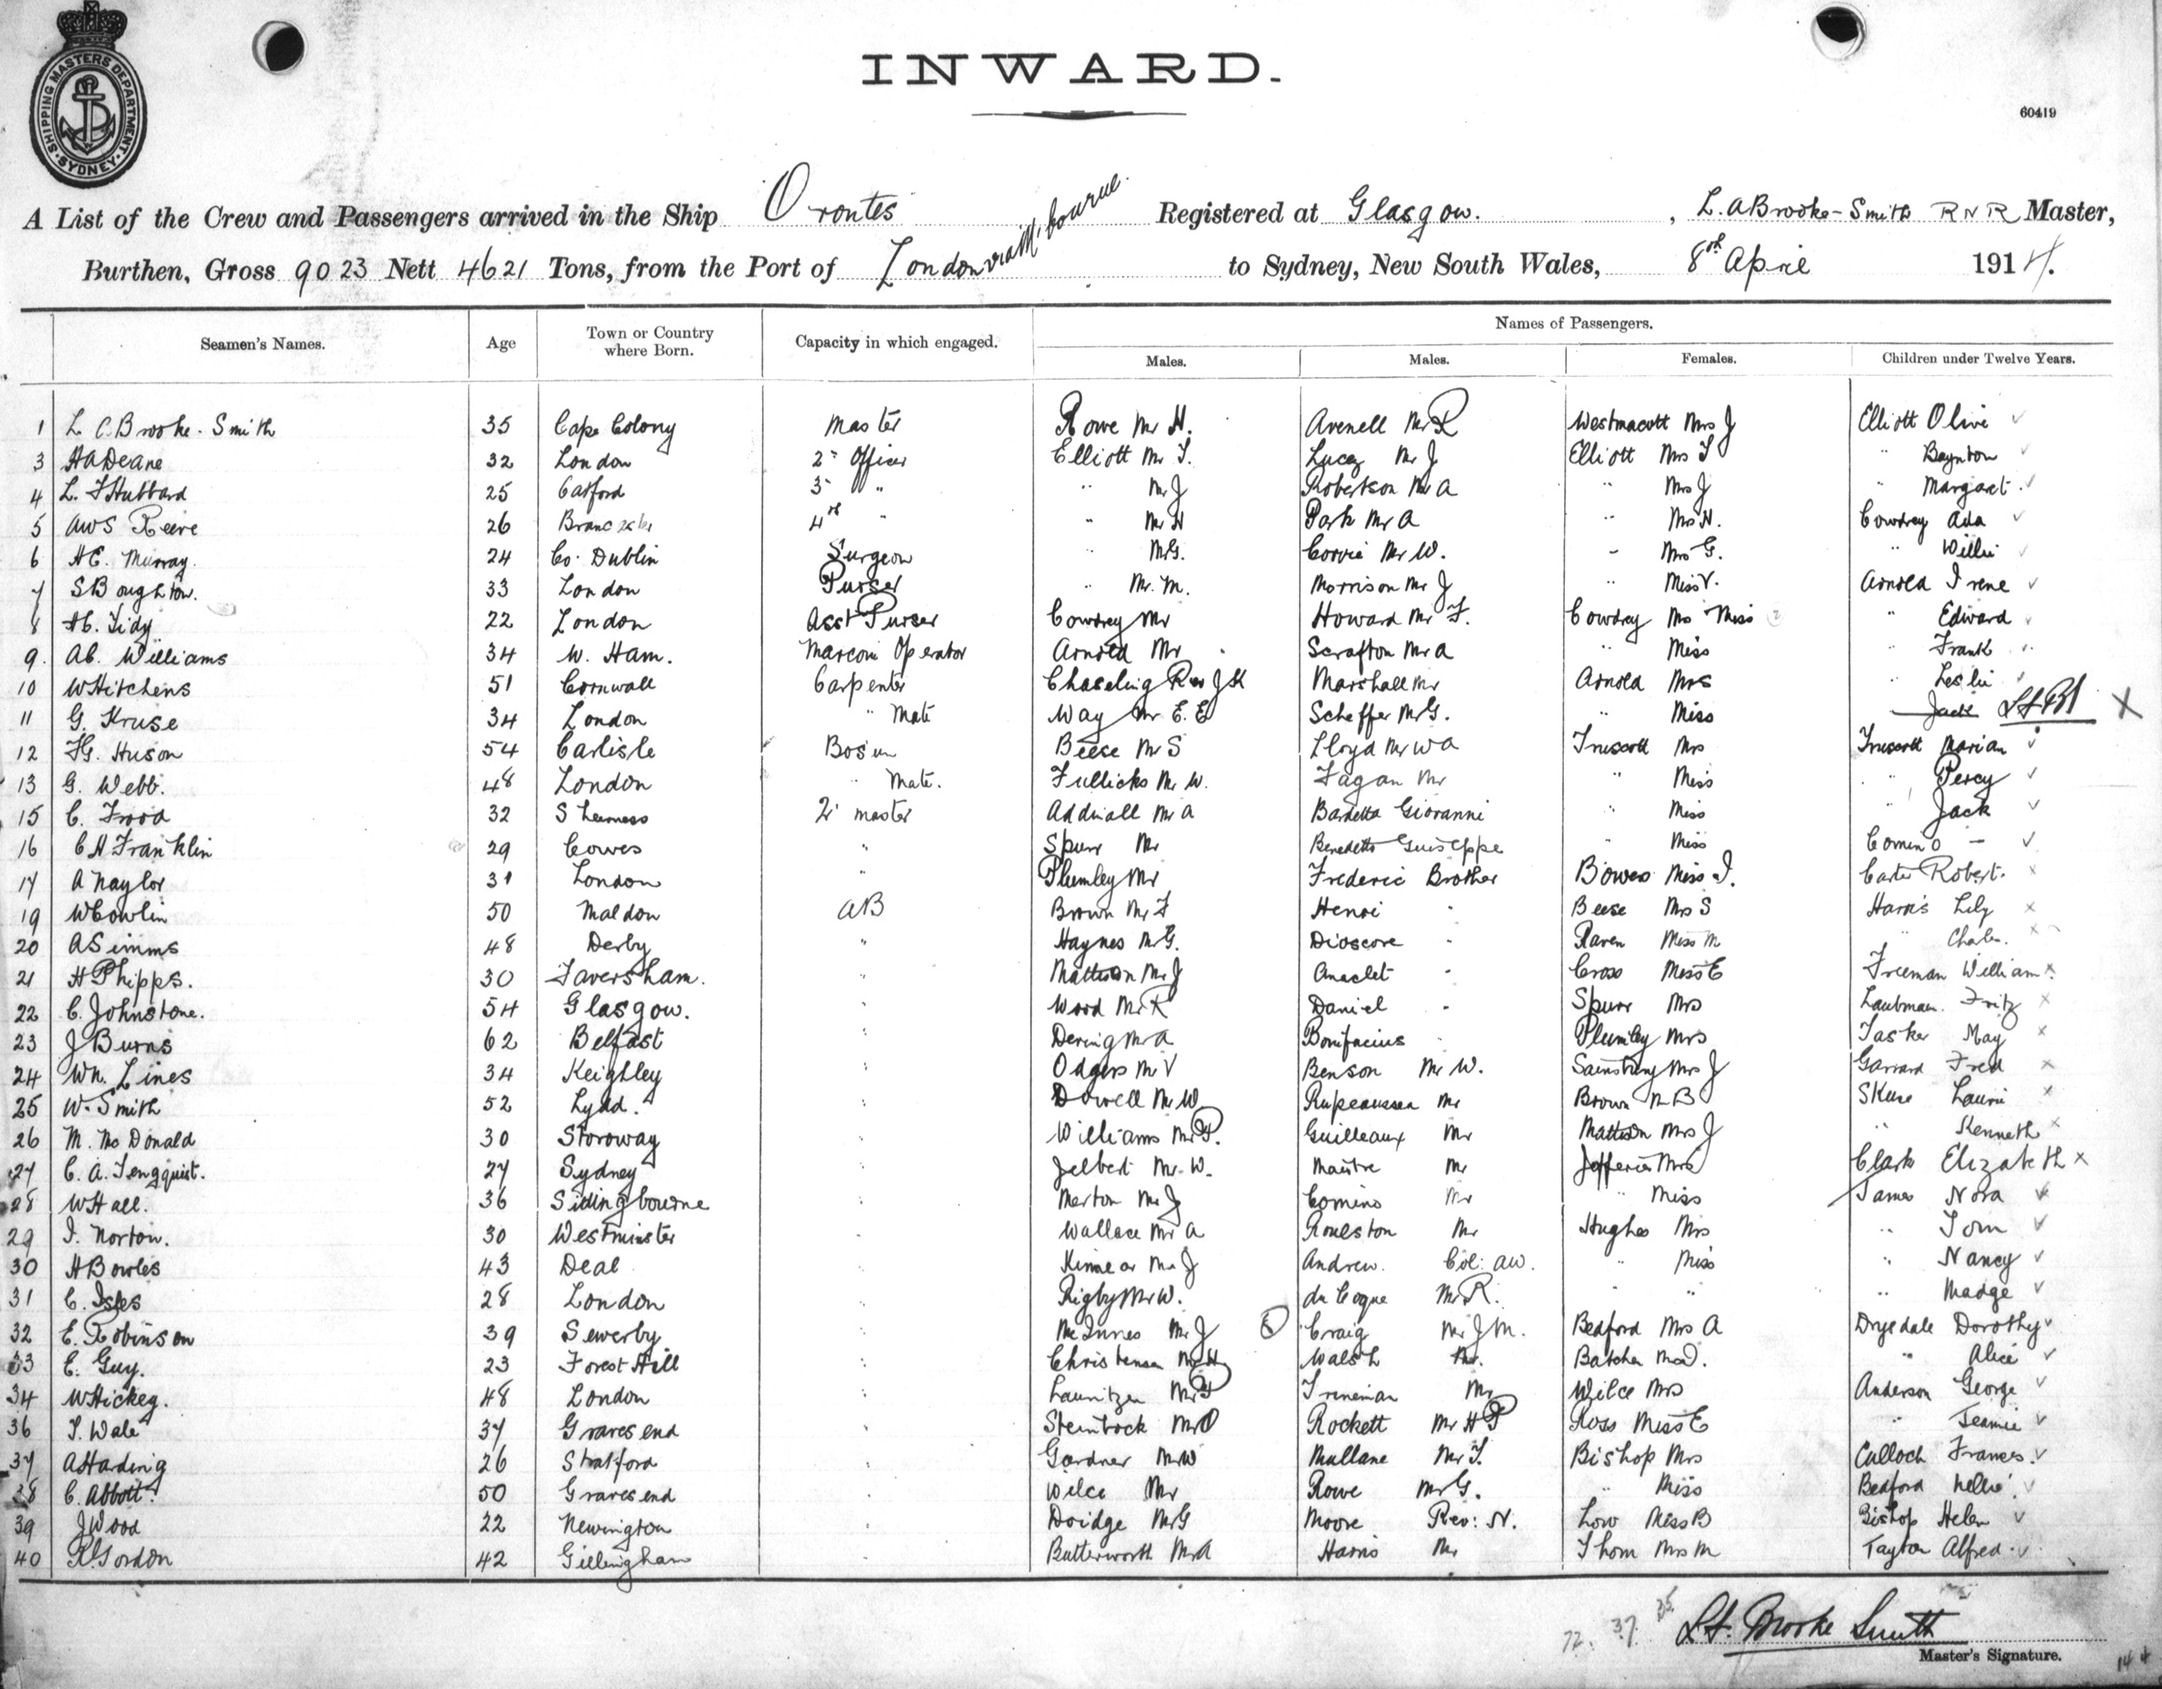 SHIPPING MASTERS DEPARTMENT
SYDNEY
INWARD.
60419
A List of the Crew and Passengers arrived in the Ship Orontes Registered at Glasgow. , L. A Brooke-Smith RNR Master,
Burthen, Gross 9023 Nett 4621 Tons, from the Port of London via M'bourne. to Sydney, New South Wales, 8th April 1914.
Names of Passengers.
Seamen's Names. Age Town or Country where Born. Capacity in which engaged. Males. Males. Females. Children under Twelve Years.
1 L. A Brooke-Smith 35 Cape Colony Master Rowe Mr H. Avenell Mr R Westmacott Mrs J Elliott Olive ✓
3 HA Deane 32 London 2" Officer Elliott Mr T. Lucey Mr J Elliott Mrs T " Baynton ✓
4 L. F Hubbard 25 Catford 3" " " Mr J Robertson Mr A " Mrs J " Margaret ✓
5 AWS Reeve 26 4th " " Mr H Park Mr A " Mrs H. Cowdrey Ada ✓
6 HE. Murray. 24 Co. Dublin Surgeon " Mr G. Corrie Mr W. " Mrs G. " Willie ✓
7 S Boughton. 33 London Purser " Mr. M. Morrison Mr J " Miss V. Arnold Irene ✓
8 HC. Tidy 22 London Asst Purser Cowdrey Mr Howard Mr F. Cowdrey Mrs Miss " Edward
9. AC. Williams 34 W. Ham. Marconi Operator Arnold Mr Scrafton Mr A " Miss " Frank
10 W Hitchens 51 Cornwall Carpenter Chaseling Rev J K Marshall Mr Arnold Mrs " Leslie
11 G. Kruse 34 London " Mate Way Mr. E. E Scheffer Mr G. " Miss Jack X
12 FG. Huson 54 Carlisle Bosun Beese Mr S Lloyd Mr W A Truscott Mrs Truscott Marian ✓
13 G. Webb. 48 London " Mate. Fullicks Mr W. Fagan Mr " Miss " Percy ✓
15 C. Frood 32 Sheerness Qr master Addinall Mr A Bardetta Giovanni " Miss " Jack ✓
16 C H Franklin 29 Cowes " Spurr Mr Benedetto Guiseppe " Miss Comino - ✓
17 A Naylor 31 London " Plumley Mr Frederic Brother Bowes Miss I. Carter Robert. x
19 W Cowlin 50 Maldon AB Brown Mr F Henri " Beese Mrs S Harris Lily x
20 A Simms 48 Derby " Haynes Mr G. Dioscore " Raven Miss M " Charles. x
21 H Phipps. 30 Faversham. " Mattison Mr J Anaclet " Cross Miss E Freeman William x
22 C. Johnstone. 54 Glasgow. " Wood Mr R Daniel " Spurr Mrs Laubman. Fritz x
23 J Burns 62 Belfast " Dering Mr A Bonifacius " Plumley Mrs Tasker May x
24 Wm. Lines 34 Keighley " Odgers Mr V Benson Mr W. Sainsbury Mrs J Garrard Fred x
25 W. Smith 52 Lydd. " Dowell Mr W Mr Brown M B Skuse Laurie x
26 M. McDonald 30 Stornoway " Williams Mr P. Guilleaux Mr Mattison Mrs J " Kenneth x
27 C. A. Tengquist. 27 Sydney " Jelbert Mr. W. Maitre Mr Jefferies Mrs Clark Elizabeth x
28 W Hall. 36 Sidingbourne " Merton Mr J Comino Mr " Miss James Nora ✓
29 I. Norton. 30 Westminster " Wallace Mr A Roulston Mr Hughes Mrs " Tom ✓
30 H Bowles 43 Deal " Kinnear Mr J Andrew. Col: AW. " Miss " Nancy ✓
31 C. Isles 28 London " Rigby Mr W. du Cogue Mr R. " " " Madge ✓
32 E. Robinson 39 Sewerby " McInnes Mr J Craig Mr J M. Bedford Mrs A Drysdale Dorothy ✓
33 E. Guy. 23 Forest Hill " Christensen Mr H Walsh Mr. Batcher " Alice ✓
34 W Hickey. 48 London " Launitzen Mr P Mr Wilce Mrs Anderson George ✓
36 T. Wale 37 Gravesend " Steinbock Mr O Rockett Mr H P Ross Miss E " Jeannie ✓
37 A Harding 26 Stratford " Gardner Mr W Mullane Mr T. Bishop Mrs Culloch Frances. ✓
38 C. Abbott. 50 Gravesend " Wilce Mr Rowe Mr G. " Miss Bedford Nellie. ✓
39 J Wood 22 Newington " Doidge Mr G Moore Rev: N. Low Miss B Bishop Helen ✓
40 R. Gordon 42 Gillingham " Butterworth Mr A Harris Mr Thom Mrs M Taylor Alfred. ✓
72. 37. 35
L A. Brooke Smith
Master's Signature.
144